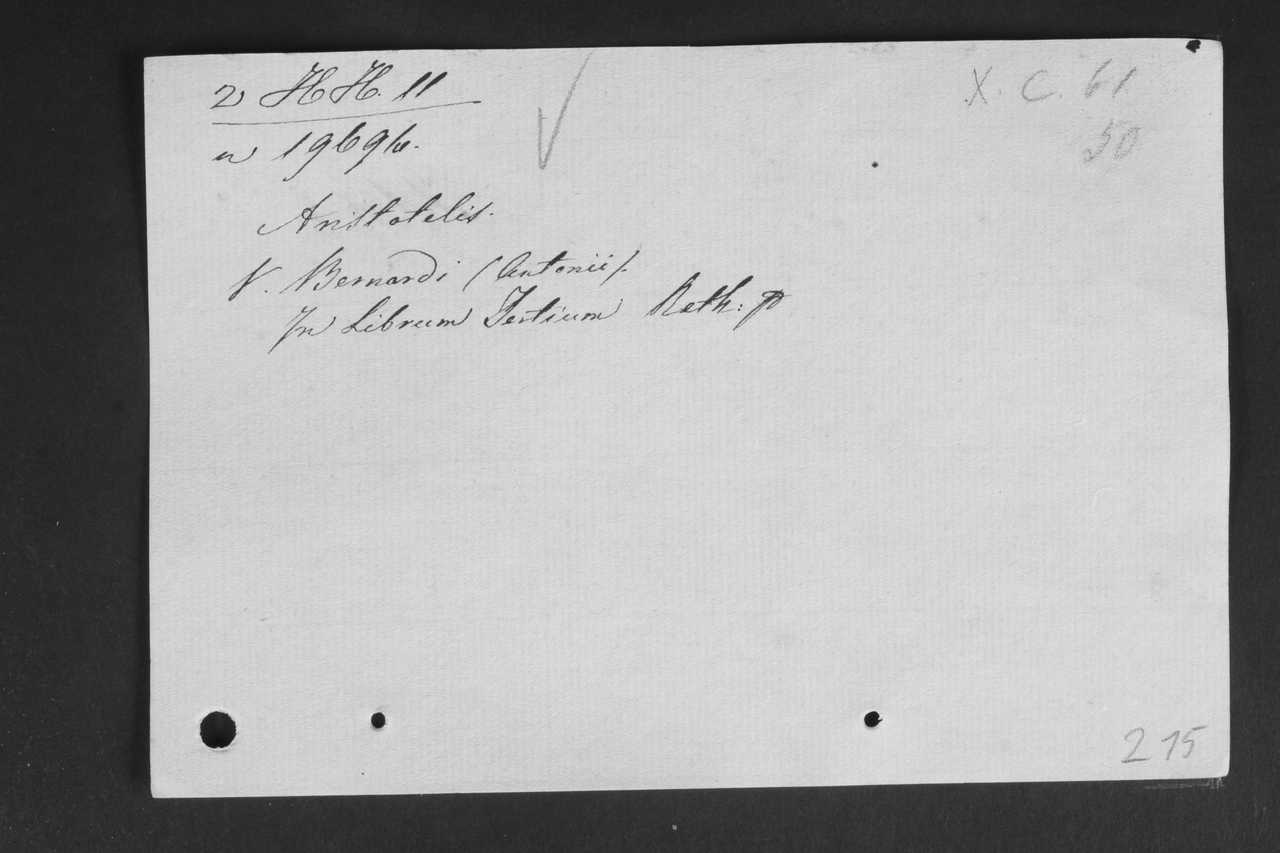 2 HH. 11
X. C. 61
50
n 1969/6.
Aristotelis.
V. Bernardi (Antonii).
In Librum Tertium Reth:
215